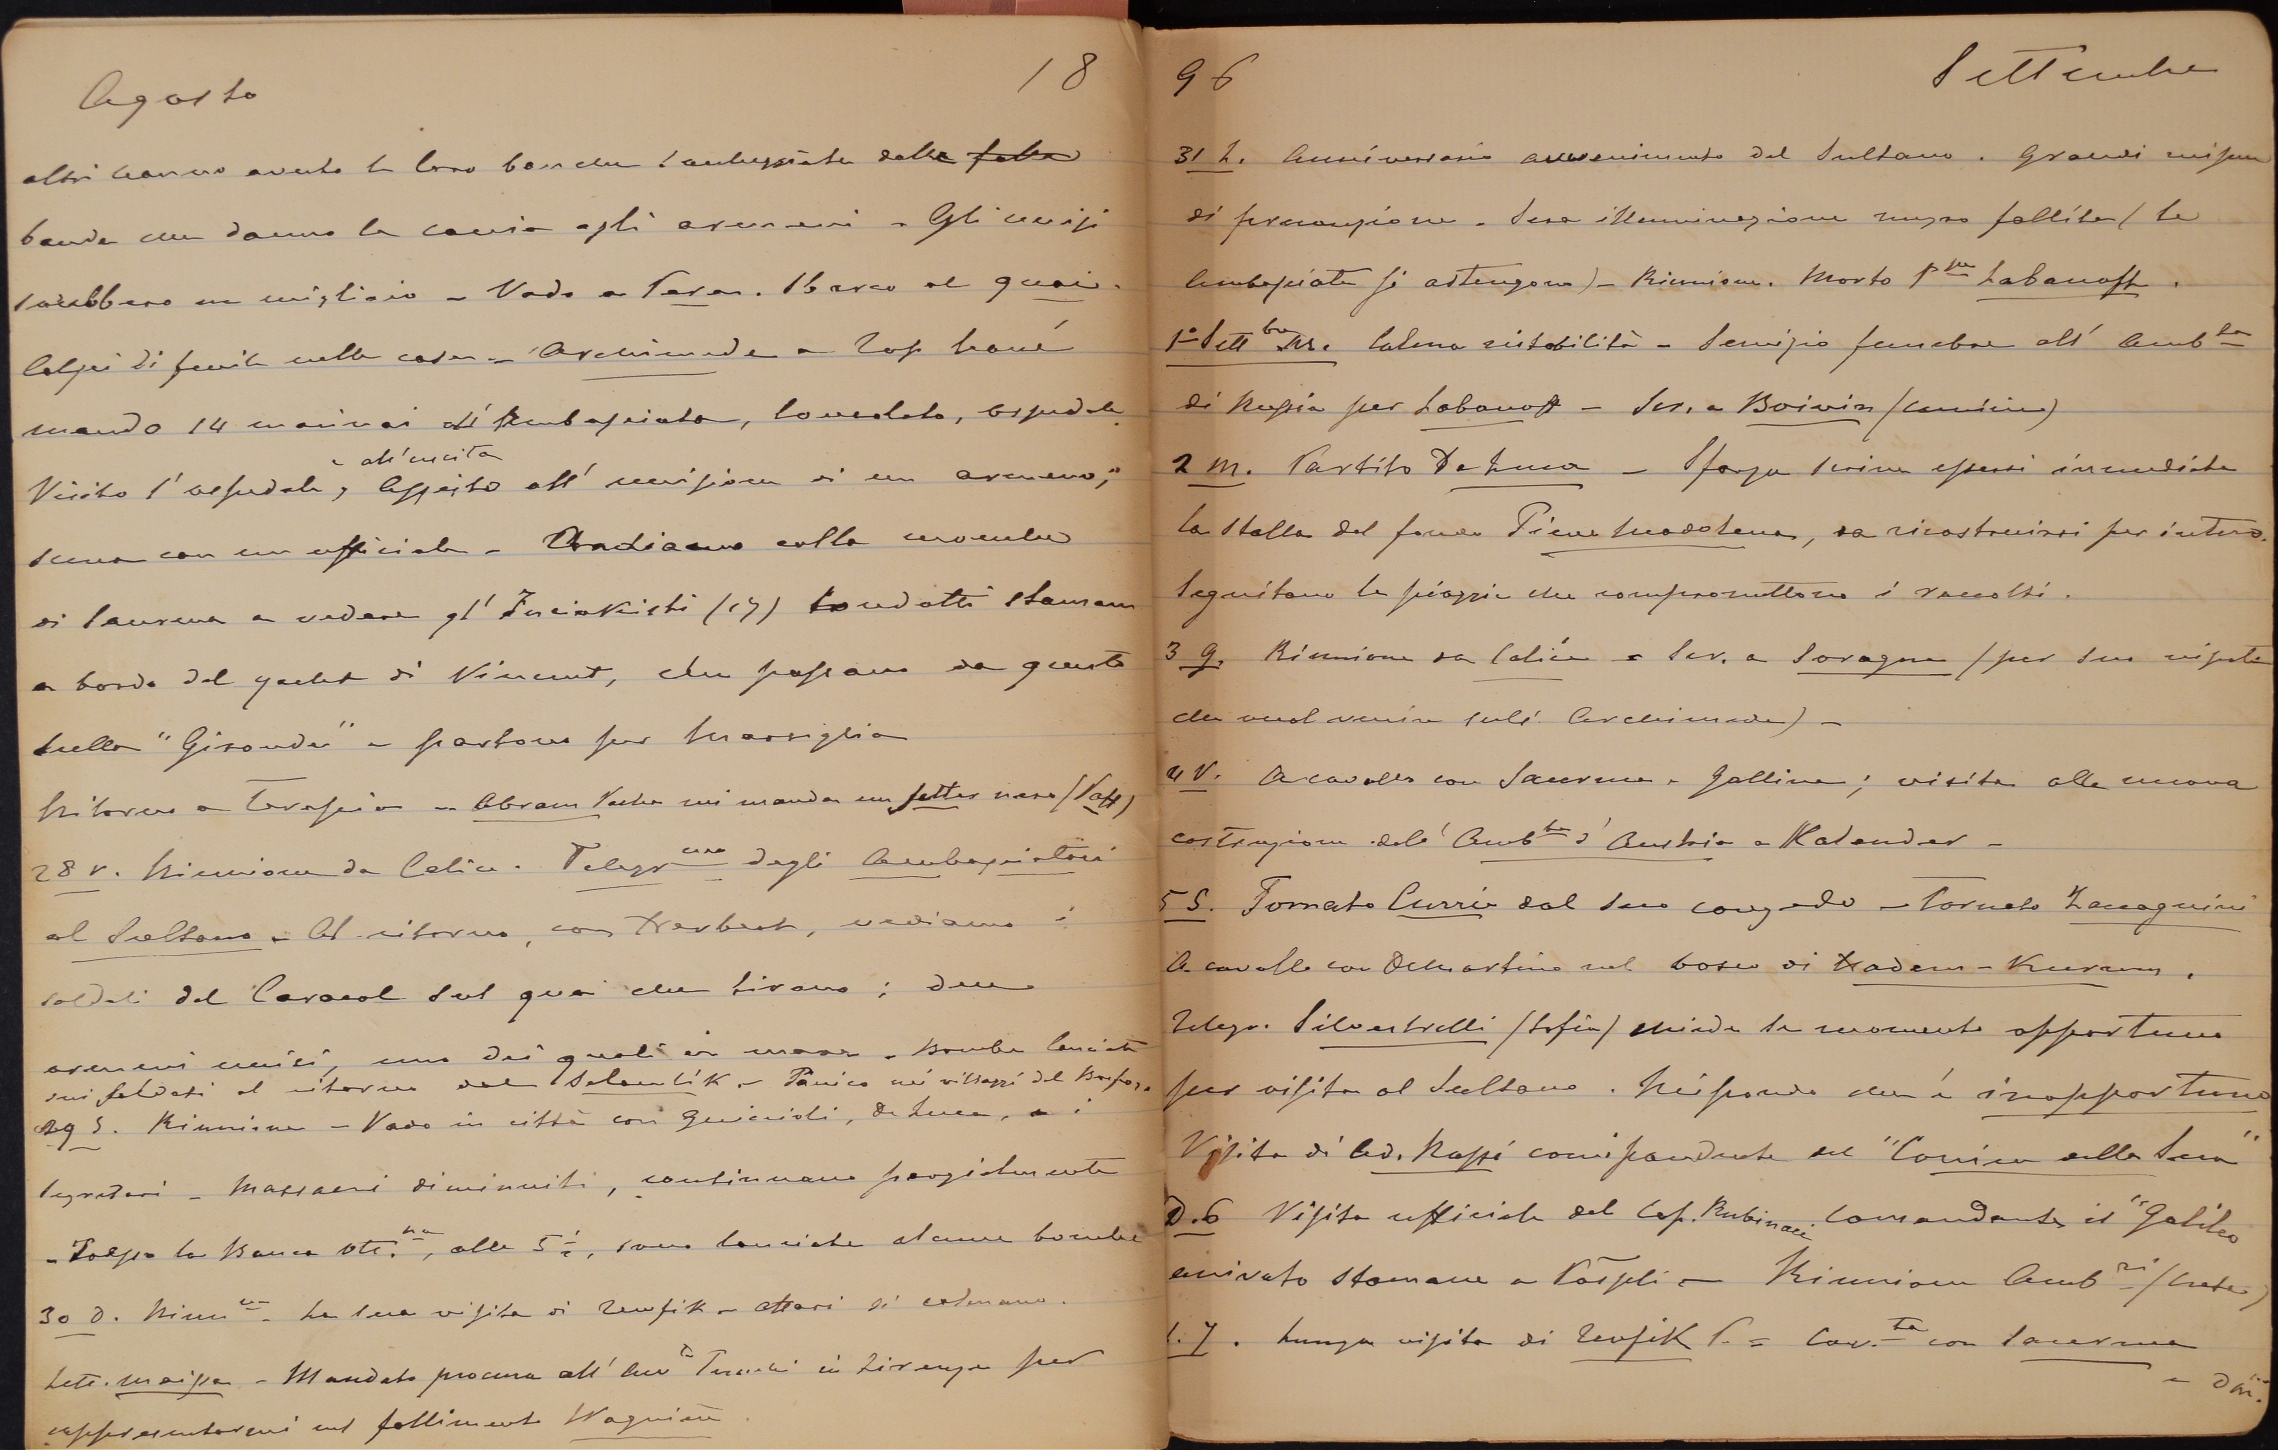 Agosto 18
altri hanno avuto le loro barche danneggiate dalle folla
bande che danno la caccia agli armeni - Gli uccisi
sarebbero un migliaio - Vado a Pera. Sbarco al quai.
Colpi di fucile nelle case - Archimede a Top hané
mando 14 marinai all'Ambasciata, Consolato, ospedale
e all'uscita
Visito l'ospedale, Assisto all'uccisione di un armeno;
scena con un ufficiale - Andiamo colla mouche
di Saurma a vedere gl' (17) condotti stamane
a bordo del yacht di Vincent, che passano da questo
sulla "Gironde" e partono per Marsiglia
Ritorno a Terapia - Abram Pacha mi manda un setter nero (Paff)
28 V. Riunione da Calice. Telegr.mma degli Ambasciatori
al Sultano - Al ritorno, con Herbert, vediamo i
soldati del Caracol sul quai che tirano; due
armeni uccisi, uno dei quali in mare - Bombe lanciate
sui soldati al ritorno dal Selamlik - Panico nei villaggi del Bosforo
29 S. Riunione - Vado in città con Guiccioli, De Luca, e i
segretari - Massacri diminuiti, continuano parzialmente
- Presso la Banca Ott.na, alle 5 1/2, sono lanciate alcune bombe
30 D. Riun.ne - La sera visita di Tewfik - Affari si calmano.
Lett. Maissa - Mandato procura all'Avv.to in Firenze per
rappresentarmi nel fallimento Wagnière.
96 Settembre
31 L. Anniversario avvenimento del Sultano. Grandi misure
di precauzione. Sera illuminazione mezzo fallita (le
Ambasciate si astengono) - Riunione. Morto P.pe Labanoff.
1° Sett.bre Mr. Calma ristabilita - Servizio funebre all'Amb.ta
di Russia per Labanoff - Scr. a Boivin
2 M. Partito De Luca - Sforza scrive essersi incendiata
la stalla del fondo Pieve Maddalena, da ricostruirsi per intero.
Seguitano le pioggie che compromettono i raccolti.
3 G. Riunione da Calice - Scr. a Soragna (per suo nipote
che vuol venire sull'Archimede) -
4 V. A cavallo con Saurma e Gallina; visita alla nuova
costruzione dell'Amb.ta d'Austria a Kalender -
5 S. Tornato Currie dal suo congedo - Tornato Zaccagnini
A cavallo con DeMartino nel bosco di Hadem-Kurum.
Telegr. Silvestrelli (Sofia) chiede se momento opportuno
per visita al Sultano. Rispondo che è inopportuno
Visita di Ad. Rossi corrispondente del "Corriere della Sera"
D. 6 Visita ufficiale del Cap. Rubinacci comandante il "Galileo
arrivato stamane a - Riunione Amb.ri (Creta)
L. 7. Lunga visita di Tewfik P. = Cav.ta con Saurma